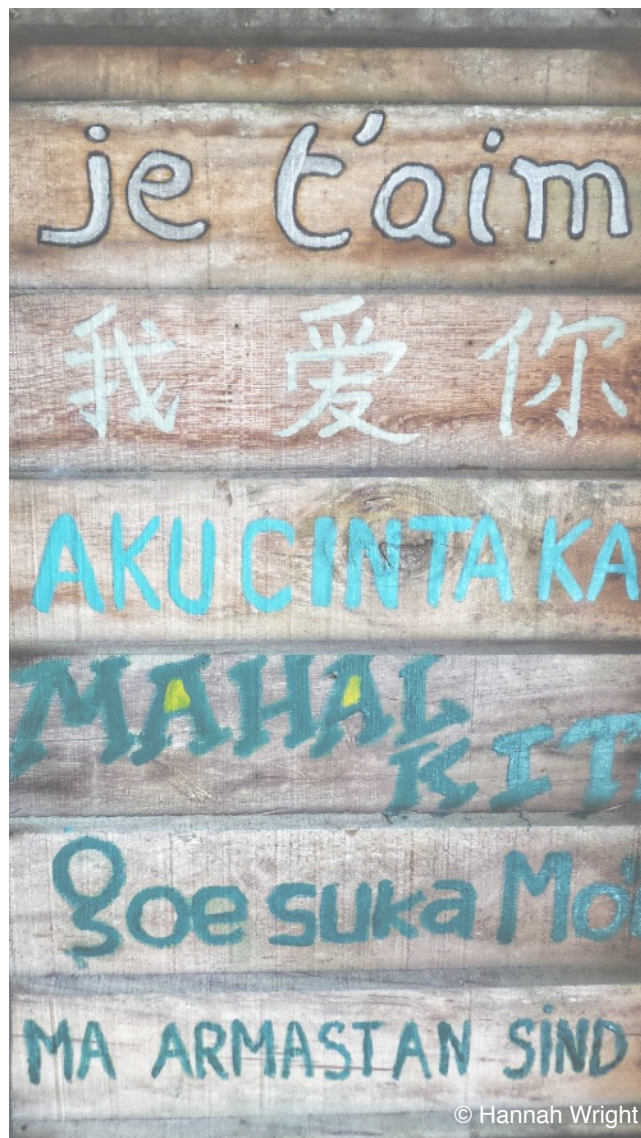 je t'aim
我 爱 你
AKU CINTA KA
MAHAL
KIT
goe suka Mo
MA ARMASTAN SIND
© Hannah Wright